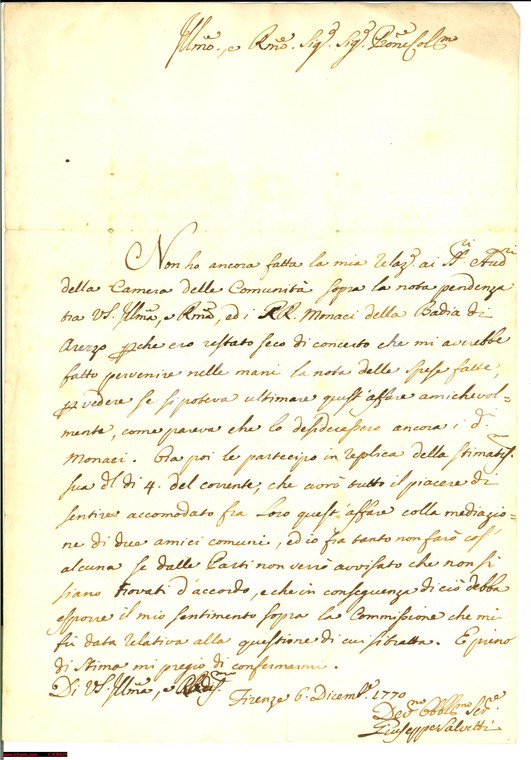 Illmo., e Rmo. Sigr. Sigr. Pne Colmo
Non ho ancora fatta la mia relaz. ai SSri. Audri
della Camera delle Comunità sopra la nota pendenza
tra VS. Illma, e Rma, ed i RR. Monaci della Badia di
Arezzo pche ero restato seco di concerto che mi averebbe
fatto pervenire nelle mani la nota delle spese fatte,
p vedere se si poteva ultimare quest'affare amichevol-
mente, come pareva che lo desiderassero ancora i d.
Monaci. Ora poi le partecipo in replica della stimatissma
sua de dì 4. del corrente, che avrò tutto il piacere di
sentire accomodato fra Loro quest'affare colla mediazio-
ne di due amici comuni, ed io fra tanto non farò cos'
alcuna se dalle Parti non verrò avvisato che non si
siano trovati d'accordo, e che in conseguenza di ciò debba
esporre il mio sentimento sopra la Commissione che mi
fù data relativa alla questione di cui si tratta. E pieno
di stima mi pregio di confermarmi.
Di VS. Illma, e
Firenze 6. Dicembe 1770
Devmo Obblmo Serve
Giuseppe Salvetti